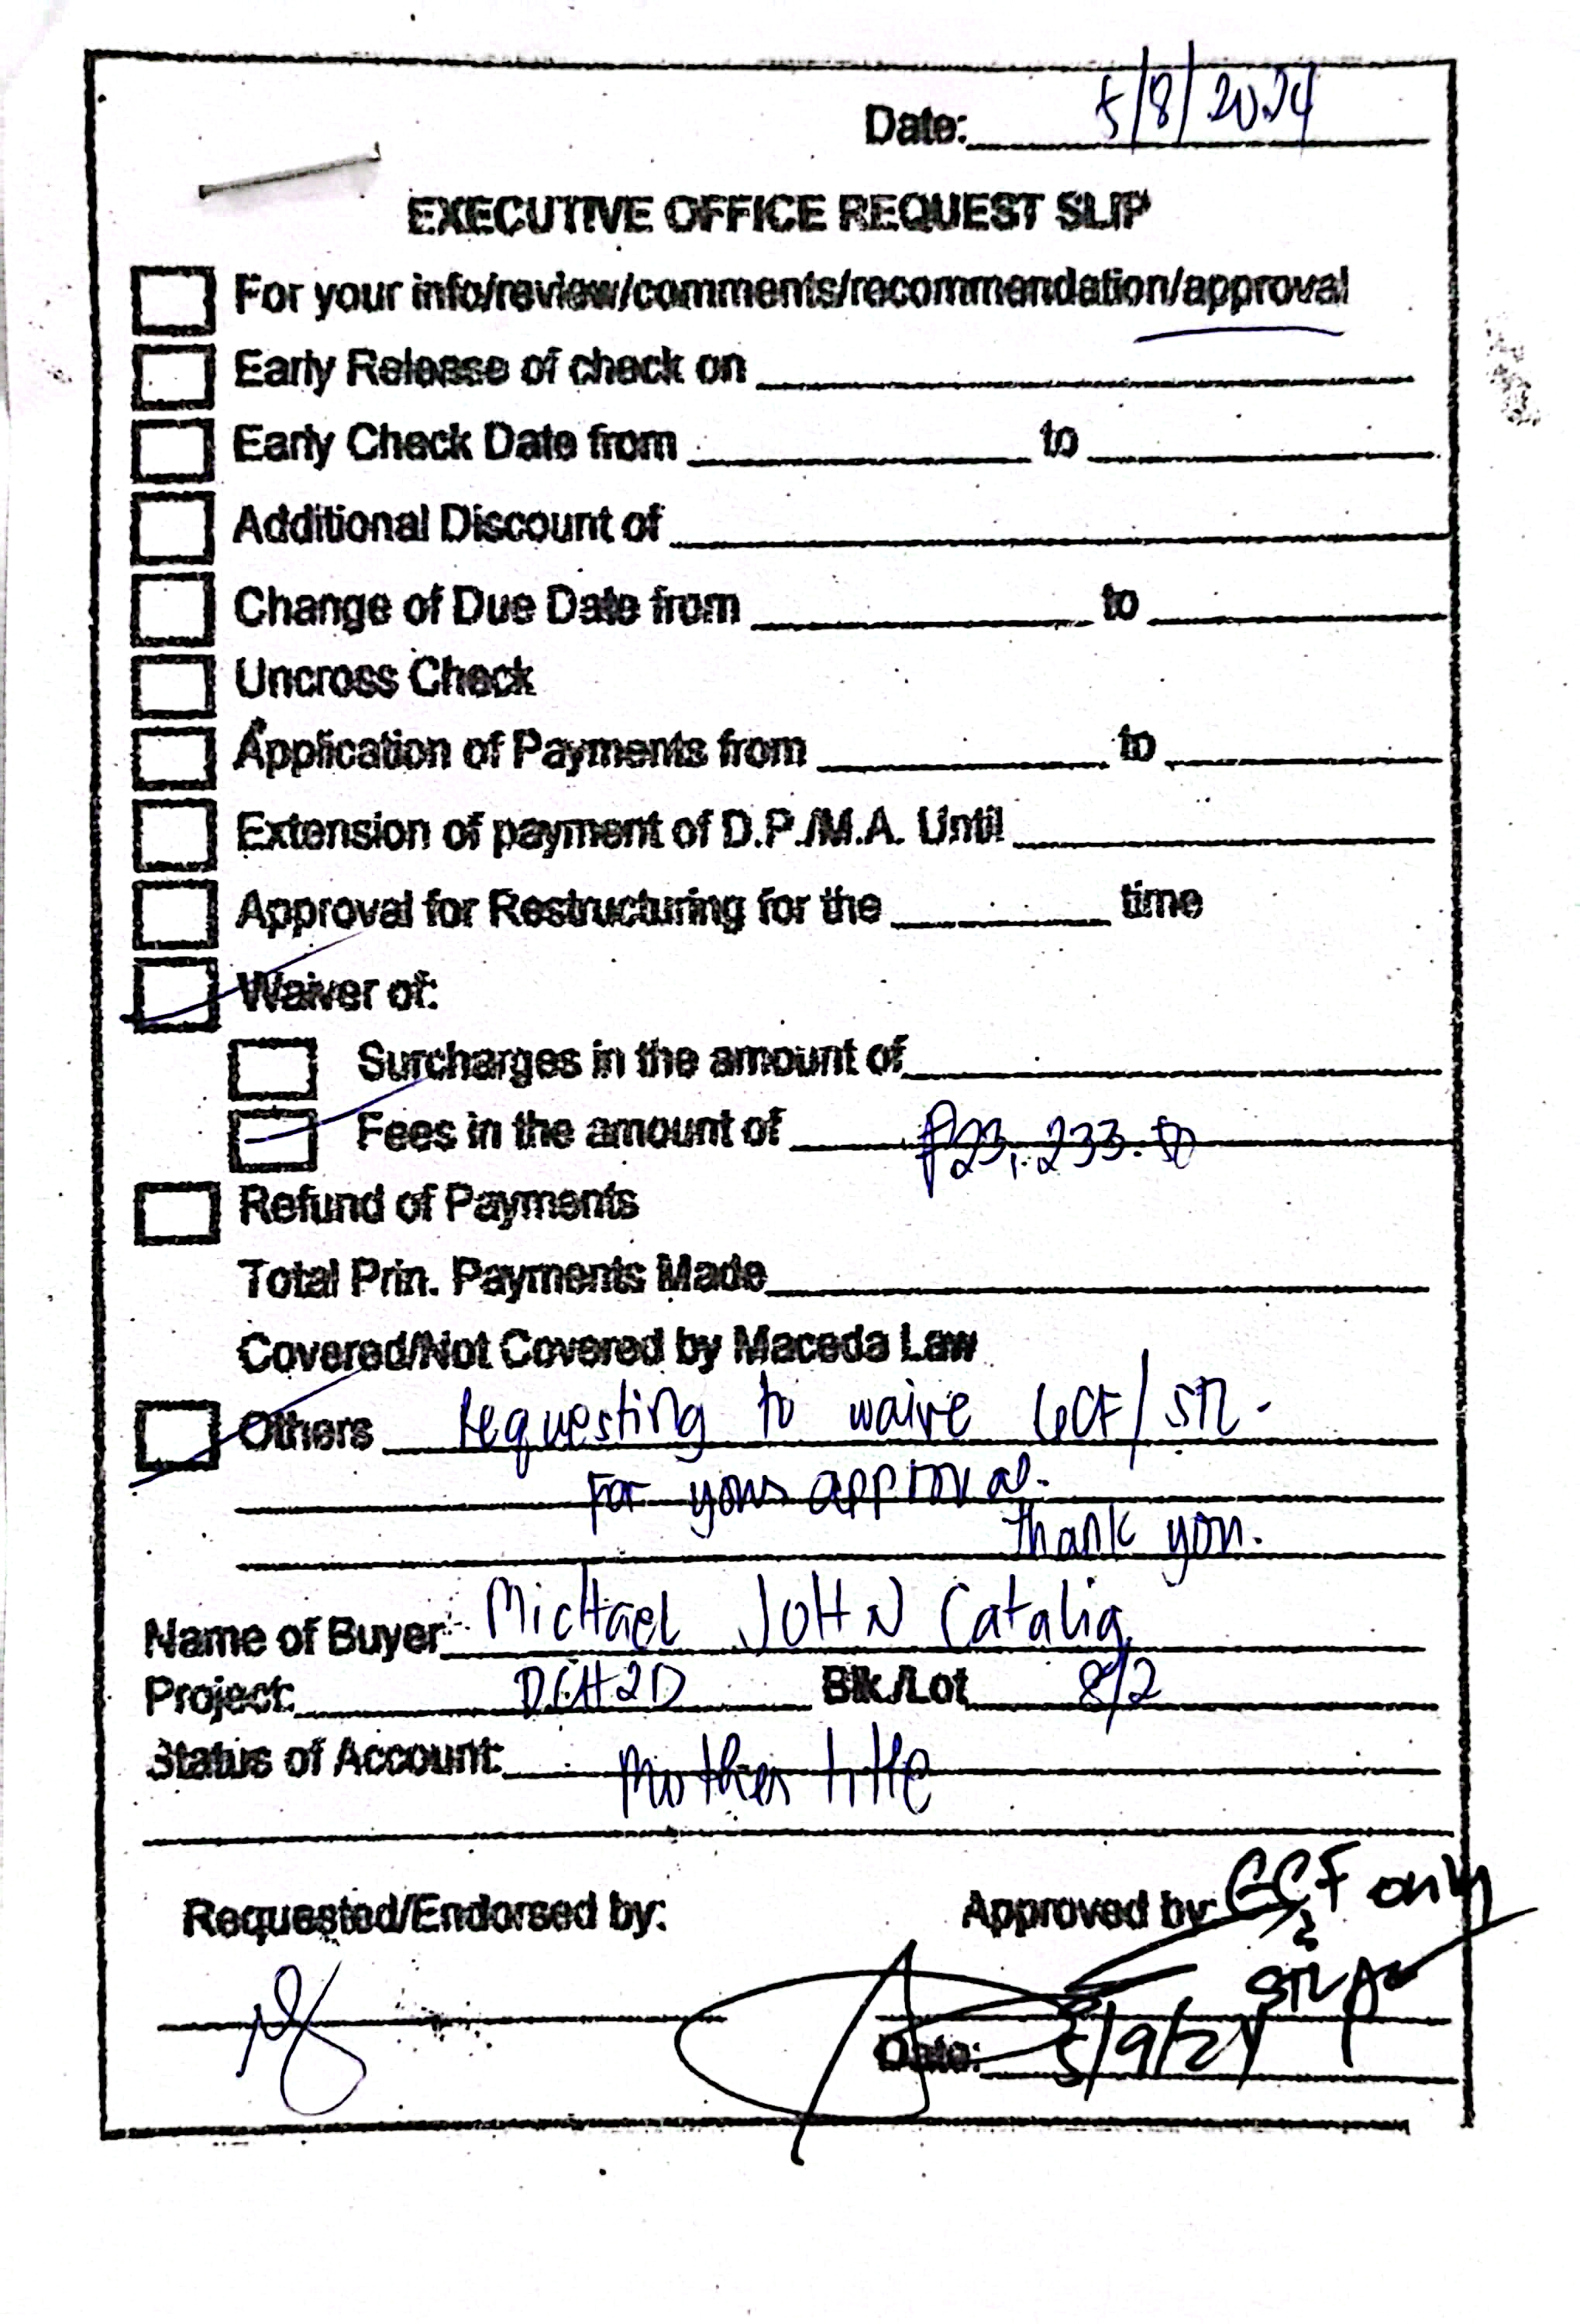 Date: 5/8/2024
EXECUTIVE OFFICE REQUEST SLIP
For your info/review/comments/recommendation/approval
Early Release of check on
Early Check Date from to
Additional Discount of
Change of Due Date from to
Uncross Check
Application of Payments from to
Extension of payment of D.P./M.A. Until
Approval for Restructuring for the time
Waiver of:
Surcharges in the amount of
Fees in the amount of ₱23,233.50
Refund of Payments
Total Prin. Payments Made
Covered/Not Covered by Maceda Law
Others requesting to waive GCF/STL.
For your approval.
Thank you.
Name of Buyer Michael John Catalig
Project: DCH2D Blk./Lot 8/2
Status of Account: Mother title
Requested/Endorsed by: Approved by: GCF only
STL
Date: 5/9/24